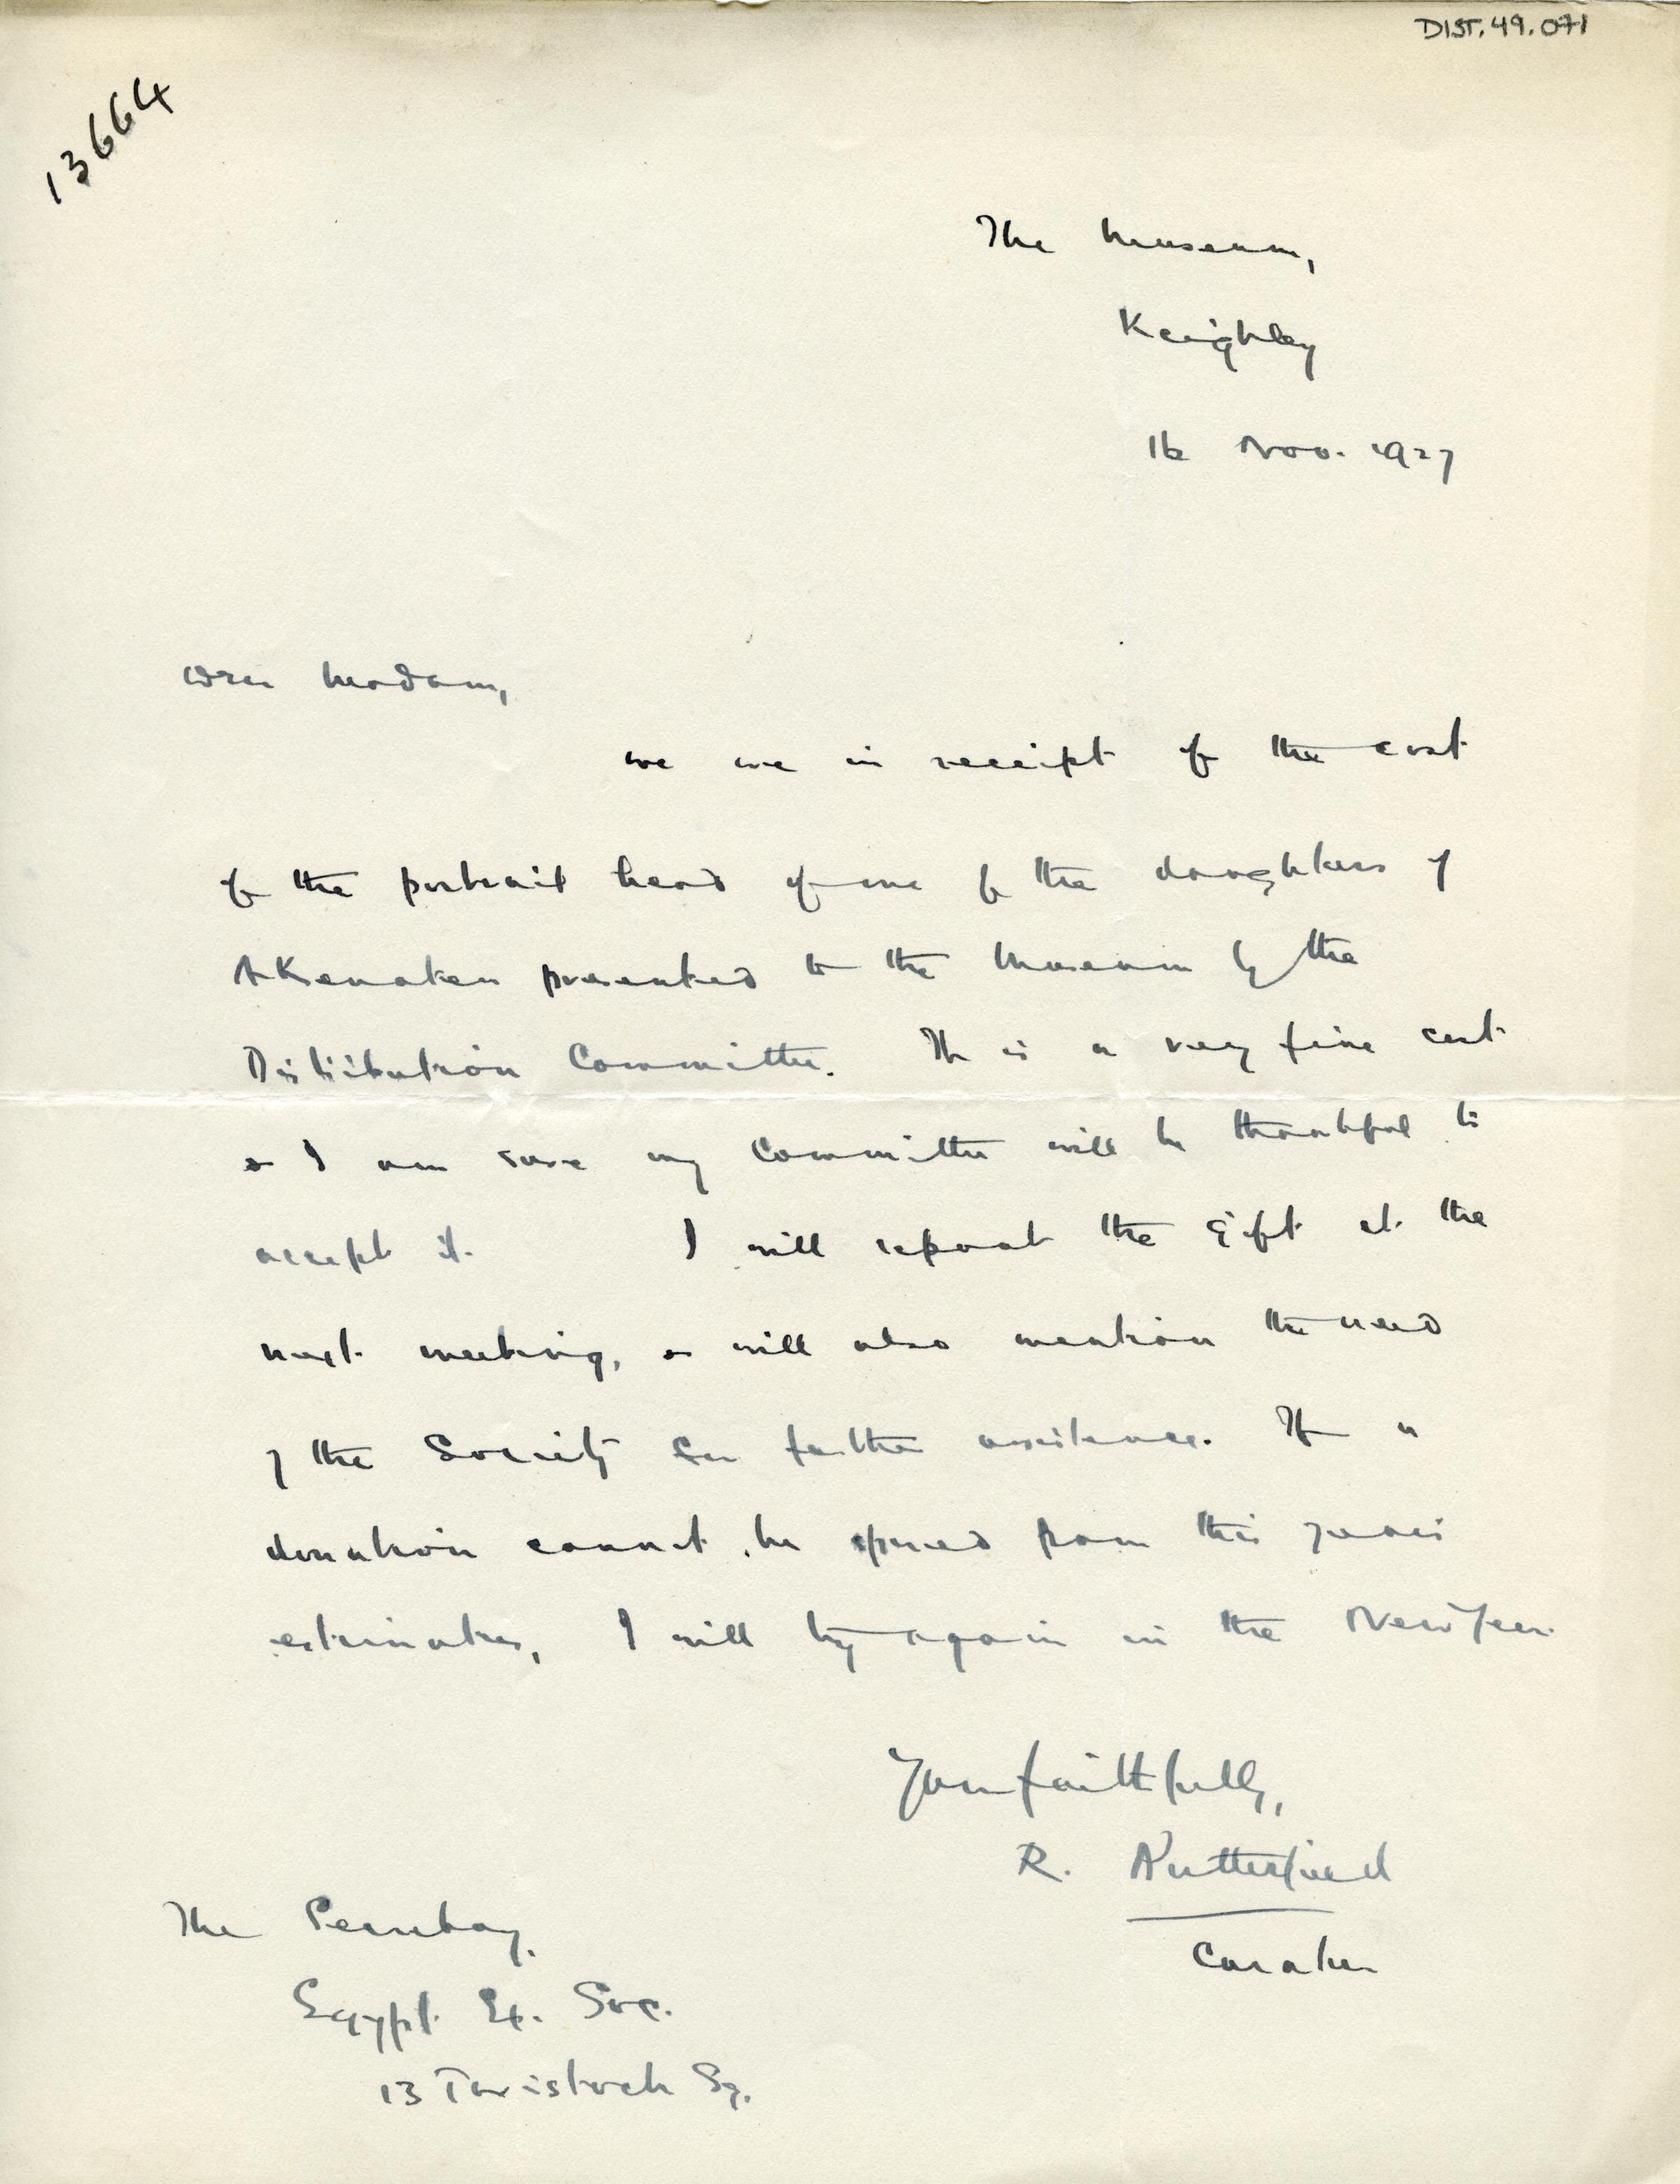 DIST.49.071
13664
The Museum,
Keighley
16 Nov. 1927
Dear Madam,
we are in receipt of the cast
of the portrait head of one of the daughters of
Akenaten presented to the Museum by the
Distribution Committee. It is a very fine cast
& I am sure my Committee will be thankful to
accept it. I will report the gift at the
next meeting, & will also mention the need
of the Society for further assistance. If a
donation cannot be spared from this years
estimates, I will try again in the New Year.
Yours faithfully,
R. Butterfield
Curator
The Secretary,
Egypt. Ex. Soc.
13 Tavistock Sq.